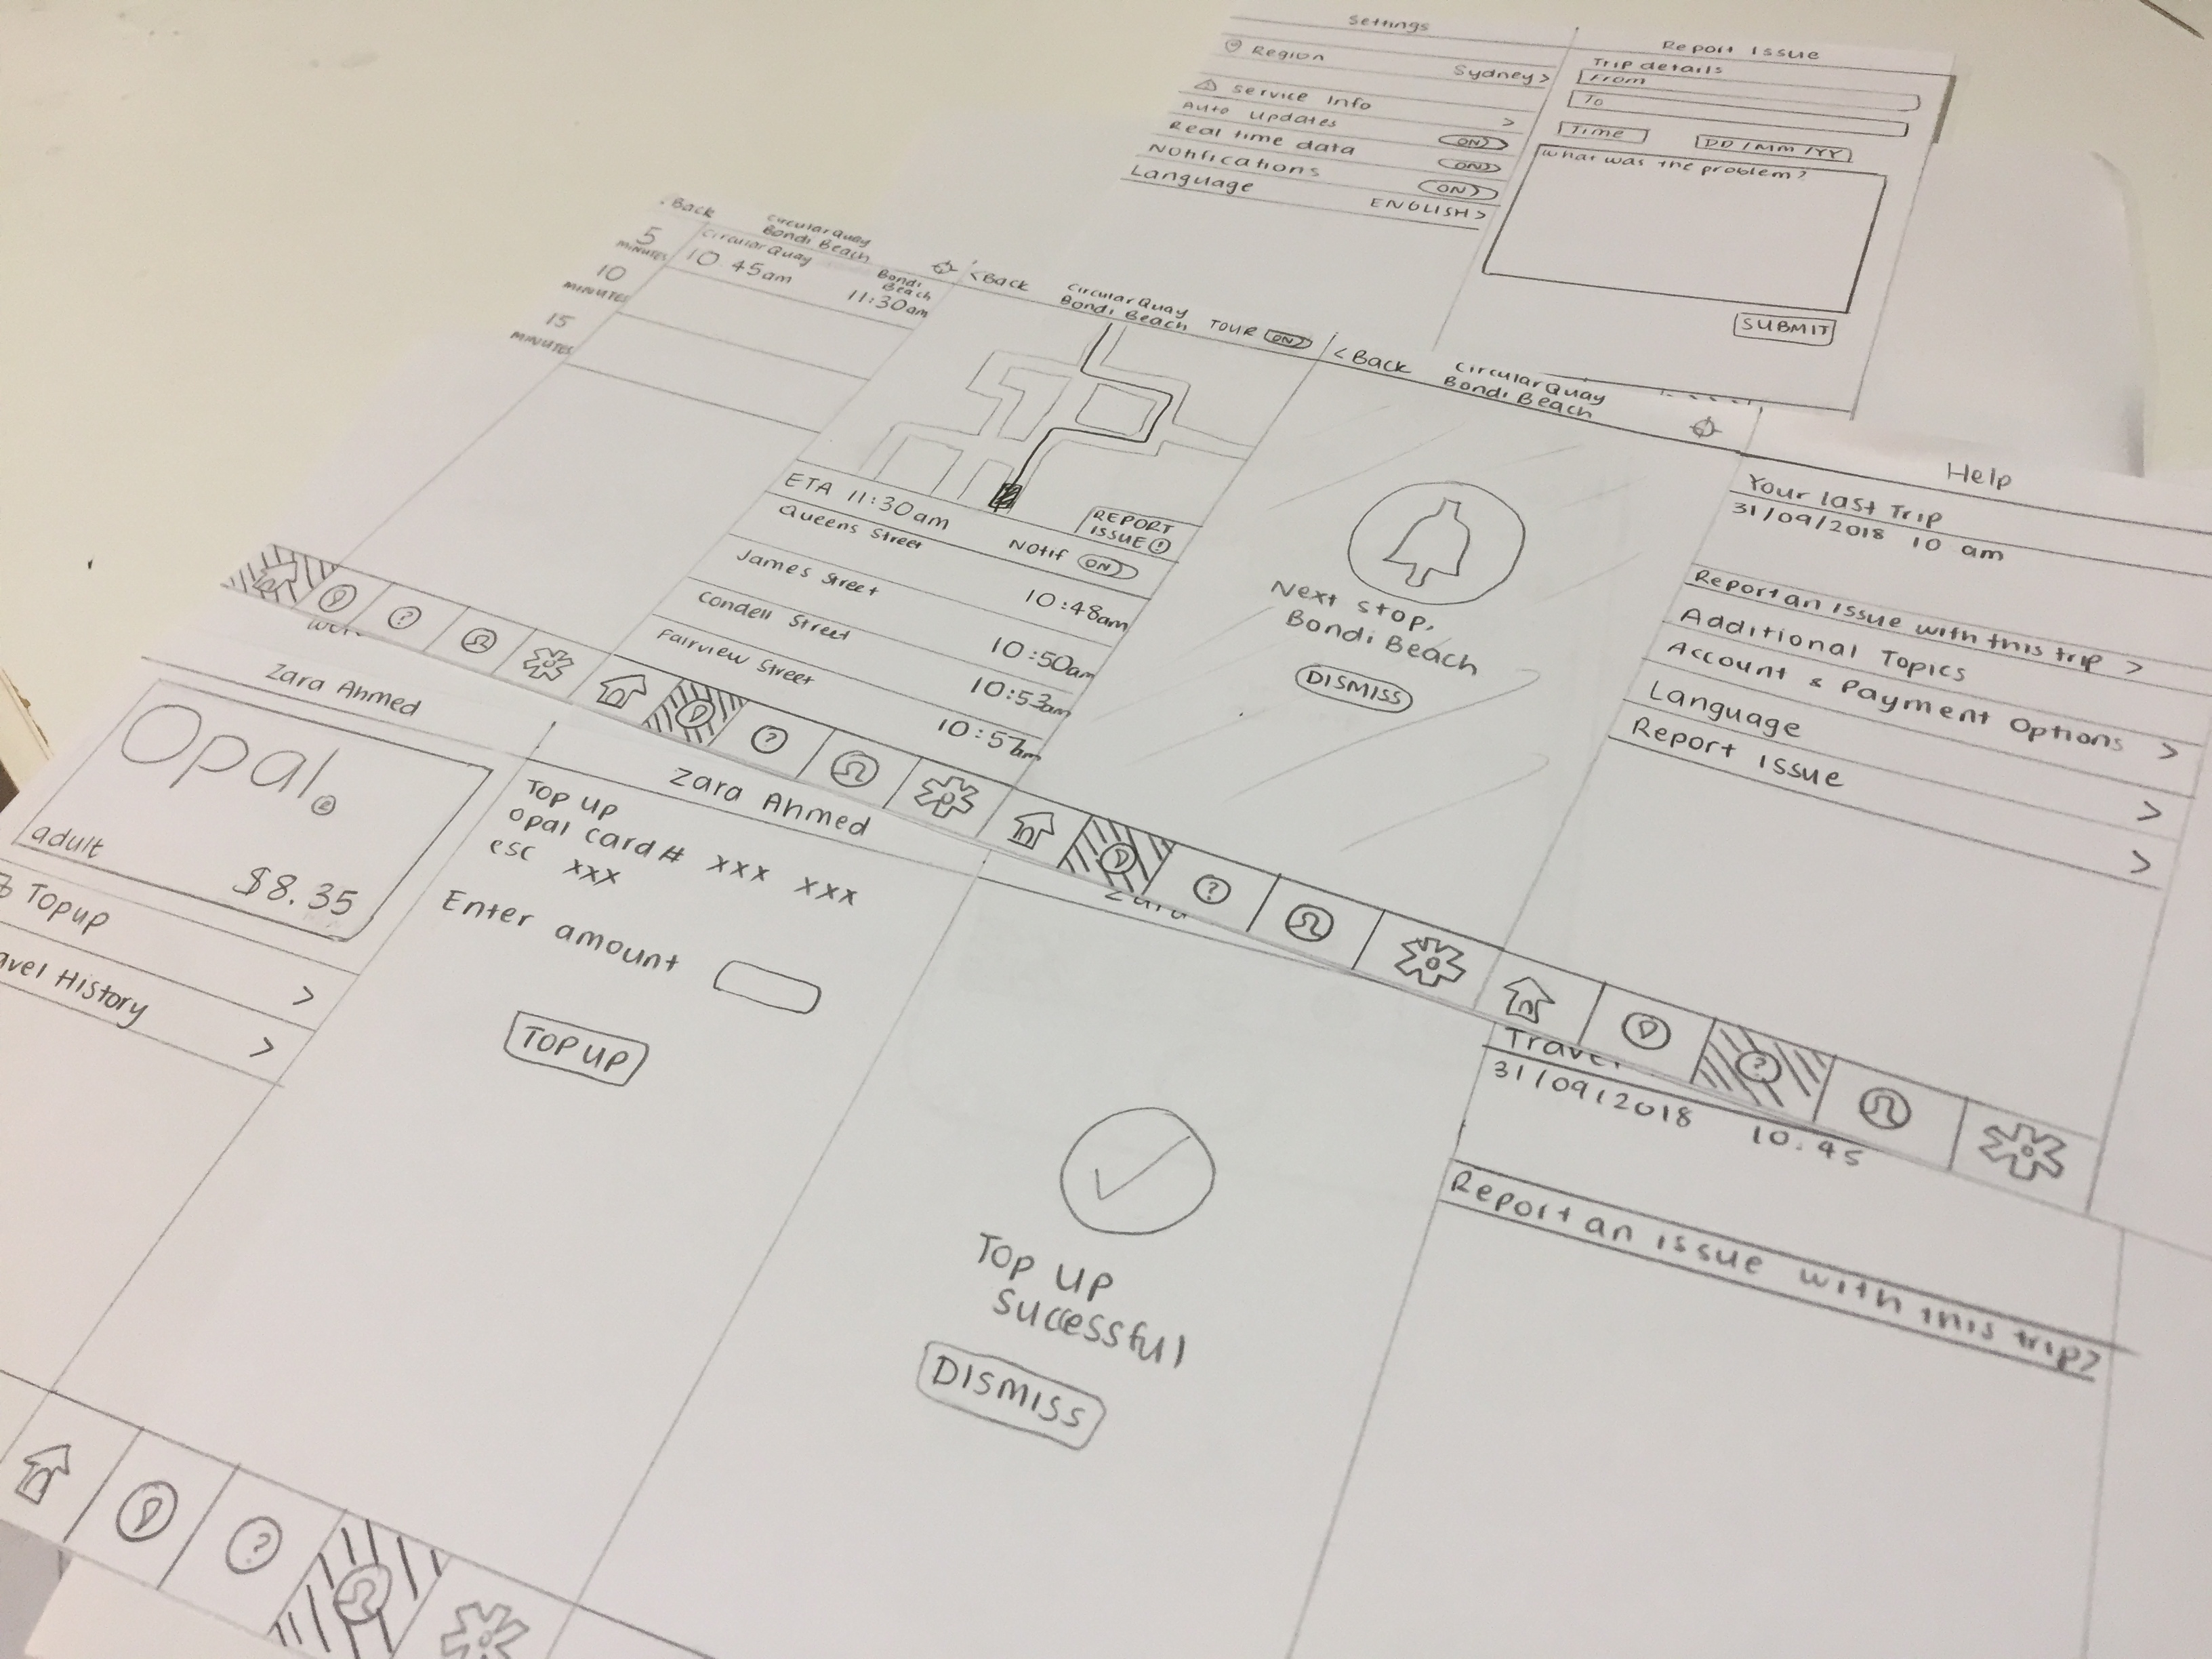 Settings
Region
Sydney >
Service Info
>
Auto Updates
ON
Real time data
ON
Notifications
ON
Language
ENGLISH >
Report Issue
Trip details
From
To
Time
DD / MM / YY
What was the problem?
SUBMIT
Back
Circular Quay
Bondi Beach
5
MINUTES
10
MINUTES
15
MINUTES
Circular Quay
10.45am
Bondi
Beach
11:30am
< Back
Circular Quay
Bondi Beach
TOUR ON
ETA 11:30am
REPORT
ISSUE !
Queens Street
Notif ON
10:48am
James Street
10:50am
Condell Street
10:53am
Fairview Street
10:57am
?
?
< Back
Circular Quay
Bondi Beach
Next stop,
Bondi Beach
DISMISS
?
Help
Your last Trip
31/09/2018 10 am
Report an issue with this trip >
Additional Topics
Account & Payment Options >
Language >
Report Issue >
?
Zara Ahmed
Opal
adult
$8.35
Topup >
avel History >
?
Zara Ahmed
Top up
Opal card # xxx xxx
esc xxx
Enter amount
TOP UP
Zara
Top up
successful
DISMISS
Travel
31/09/2018 10.45
Report an issue with this trip>